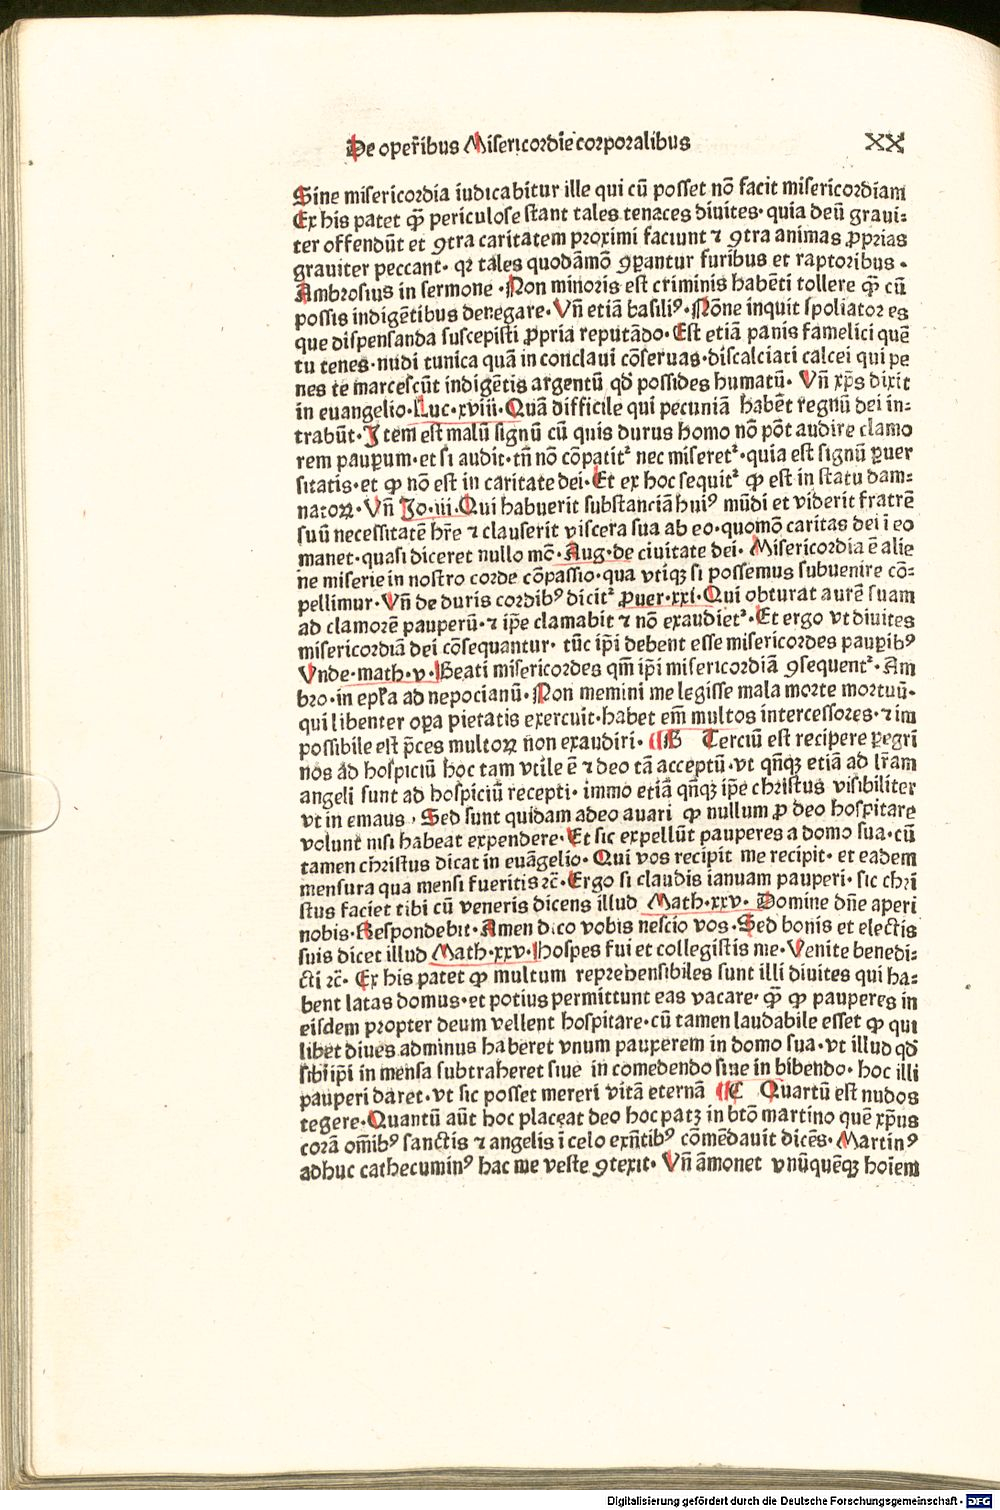 De oper̃ibus Misericordie corporalibus XX
Sine misericordia iudicabitur ille qui cū posset nō facit misericordiam
Ex his patet ꝙ̄ periculose stant tales tenaces diuites· quia deū graui⸗
ter offendūt et ꝯtra caritatem proximi faciunt ⁊ ꝯtra animas ꝓprias
grauiter peccant· qr tales quodāmō ꝯꝑantur furibus et raptoribus·
Ambrosius in sermone ·Non minoris est criminis habēti tollere ꝙ̄ cū
possis indigētibus denegare· Vn̄ etiā basiliꝰ·Nōne inquit spoliator es
que dispensanda suscepisti ꝓpria reputādo· Est etiā panis famelici quē
tu tenes·nudi tunica quā in conclaui cōseruas·discalciati calcei qui pe
nes te marcescūt indigētis argentū qd̄ possides humatū· Vn̄ xp̄s dixit
in euangelio·Luc·xviii·Quā difficile qui pecuniā habēt regnū dei in⸗
trabūt·Item est malū signū cū quis durus homo nō pōt audire clamo
rem pauꝑum·et si audit·tn̄ nō cōpatitᷣ nec miseretᷣ·quia est signū ꝑuer
sitatis·et ꝙ nō est in caritate dei·Et ex hoc sequitᷣ ꝙ est in statu dam⸗
natoꝝ·Vn̄ Jo·iii·Qui habuerit substanciā huiꝰ mūdi et viderit fratrē
suū necessitatē hr̄e ⁊ clauserit viscera sua ab eo·quomō caritas dei ī eo
manet·quasi diceret nullo mō·Aug·de ciuitate dei· Misericordia ē alie
ne miserie in nostro corde cōpassio·qua vtiqꝫ si possemus subuenire cō⸗
pellimur·Vn̄ de duris cordibꝰ dicitᷣ ꝓuer·xxi·Qui obturat aurē suam
ad clamorē pauperū·⁊ ip̄e clamabit ⁊ nō exaudietᷣ·Et ergo vt diuites
misericordiā dei cōsequantur· tūc ip̄i debent esse misericordes pauꝑibꝰ
Vnde·math·v·Beati misericordes qm̄ ip̄i misericordiā ꝯsequentᷣ·Am
bro·in epl̄a ad nepocianū·Non memini me legisse mala morte mortuū·
qui libenter oꝑa pietatis exercuit·habet em̄ multos intercessores·⁊ im
possibile est p̄ces multoꝝ non exaudiri· ¶B Terciū est recipere ꝑegri
nos ad hospiciū hoc tam vtile ē ⁊ deo tā acceptū·vt qn̄qꝫ etiā ad lr̄am
angeli sunt ad hospiciū recepti· immo etiā qn̄qꝫ ip̄e christus visibiliter
vt in emaus·Sed sunt quidam adeo auari ꝙ nullum ꝓ deo hospitare
volunt nisi habeat expendere·Et sic expellūt pauperes a domo sua·cū
tamen christus dicat in euāgelio·Qui vos recipit me recipit·et eadem
mensura qua mensi fueritis ⁊c̄·Ergo si claudis ianuam pauperi·sic chri
stus faciet tibi cū veneris dicens illud Math·xxv· Domine dn̄e aperi
nobis·Respondebit·Amen dico vobis nescio vos·Sed bonis et electis
suis dicet illud Math·xxv·Hospes fui et collegistis me·Venite benedi⸗
cti ⁊c̄· Ex his patet ꝙ multum reprehensibiles sunt illi diuites qui ha⸗
bent latas domus·et potius permittunt eas vacare·ꝙ̄ ꝙ pauperes in
eisdem propter deum vellent hospitare·cū tamen laudabile esset ꝙ qui
libet diues adminus haberet vnum pauꝑerem in domo sua·vt illud qd̄
sibiip̄i in mensa subtraheret siue in comedendo siue in bibendo·hoc illi
pauperi daret·vt sic posset mereri vitā eternā ¶C Quartū est nudos
tegere·Quantū aūt hoc placeat deo hoc patꝫ in btō martino quē xp̄us
corā om̄ibꝰ sanctis ⁊ angelis ī celo exn̄tibꝰ cōmēdauit dicēs·Martinꝰ
adhuc cathecuminꝰ hac me veste ꝯtexit·Vn̄ āmonet vnūquēqꝫ hoīem
Digitalisierung gefördert durch die Deutsche Forschungsgemeinschaft - DFG